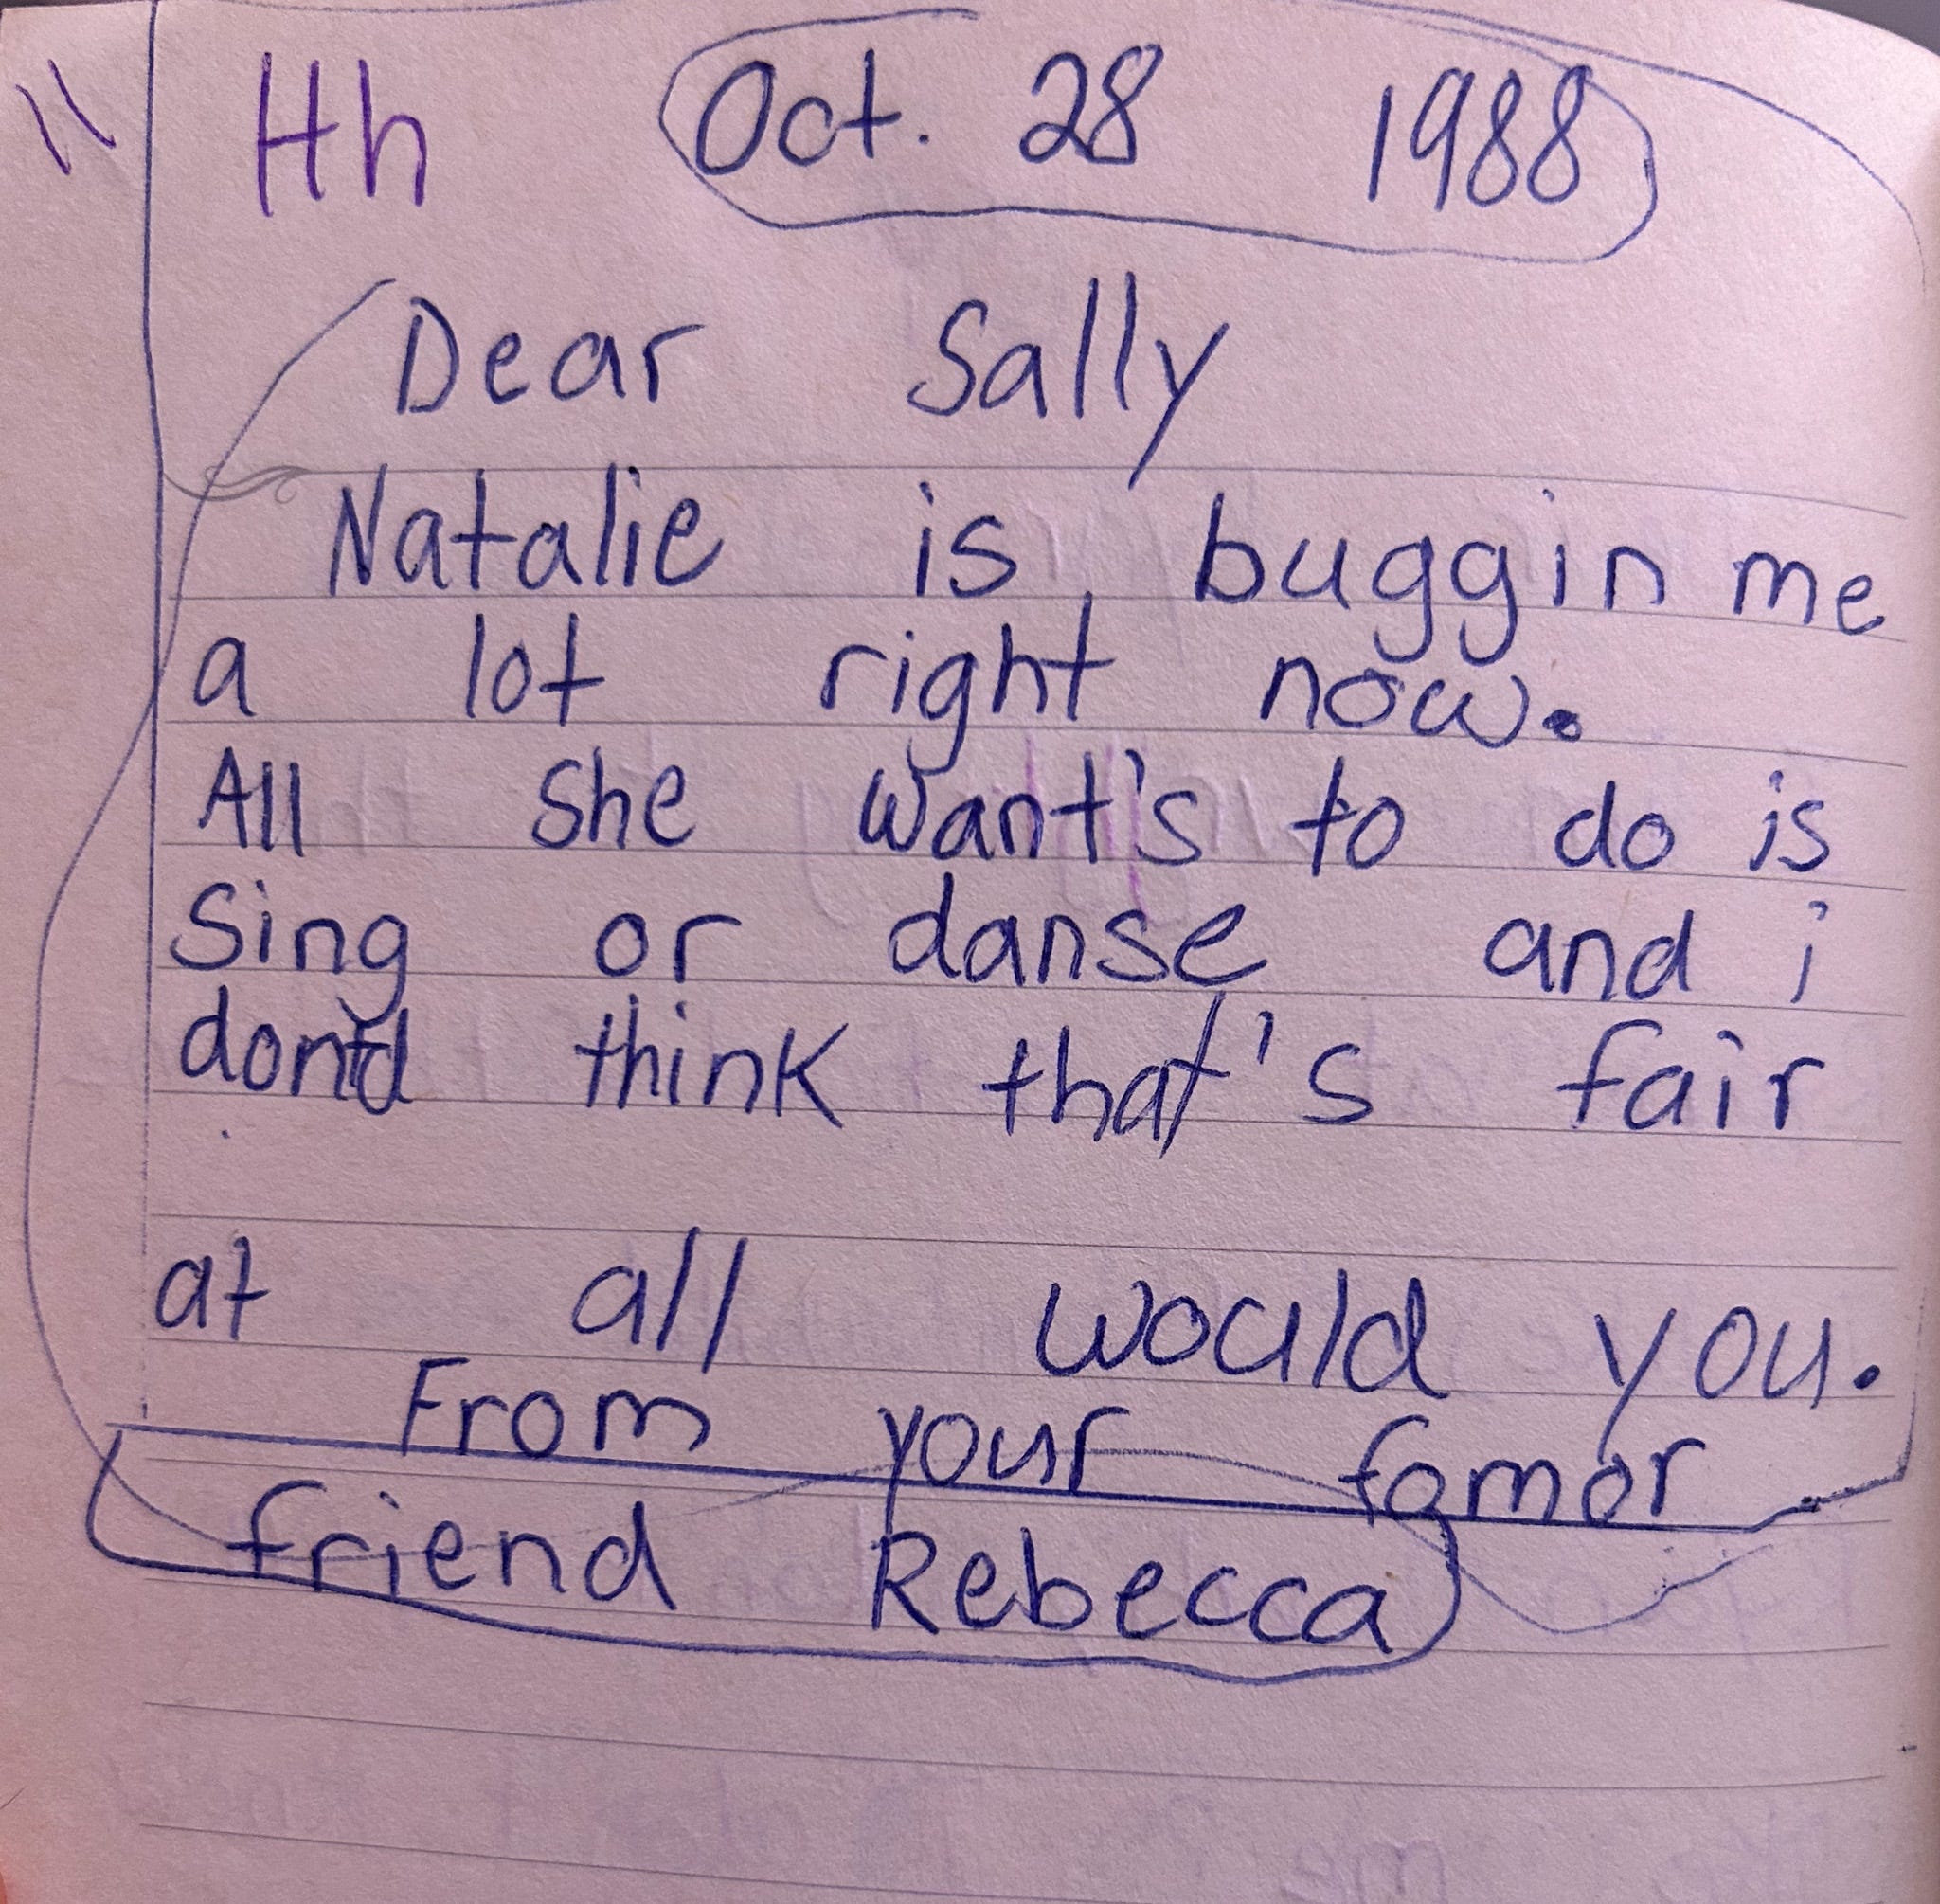 11 Hh Oct. 28 1988
Dear Sally
Natalie is buggin me
a lot right now.
All she want's to do is
Sing or danse and i
don't think that's fair
at all would you.
From your fomor
friend Rebecca